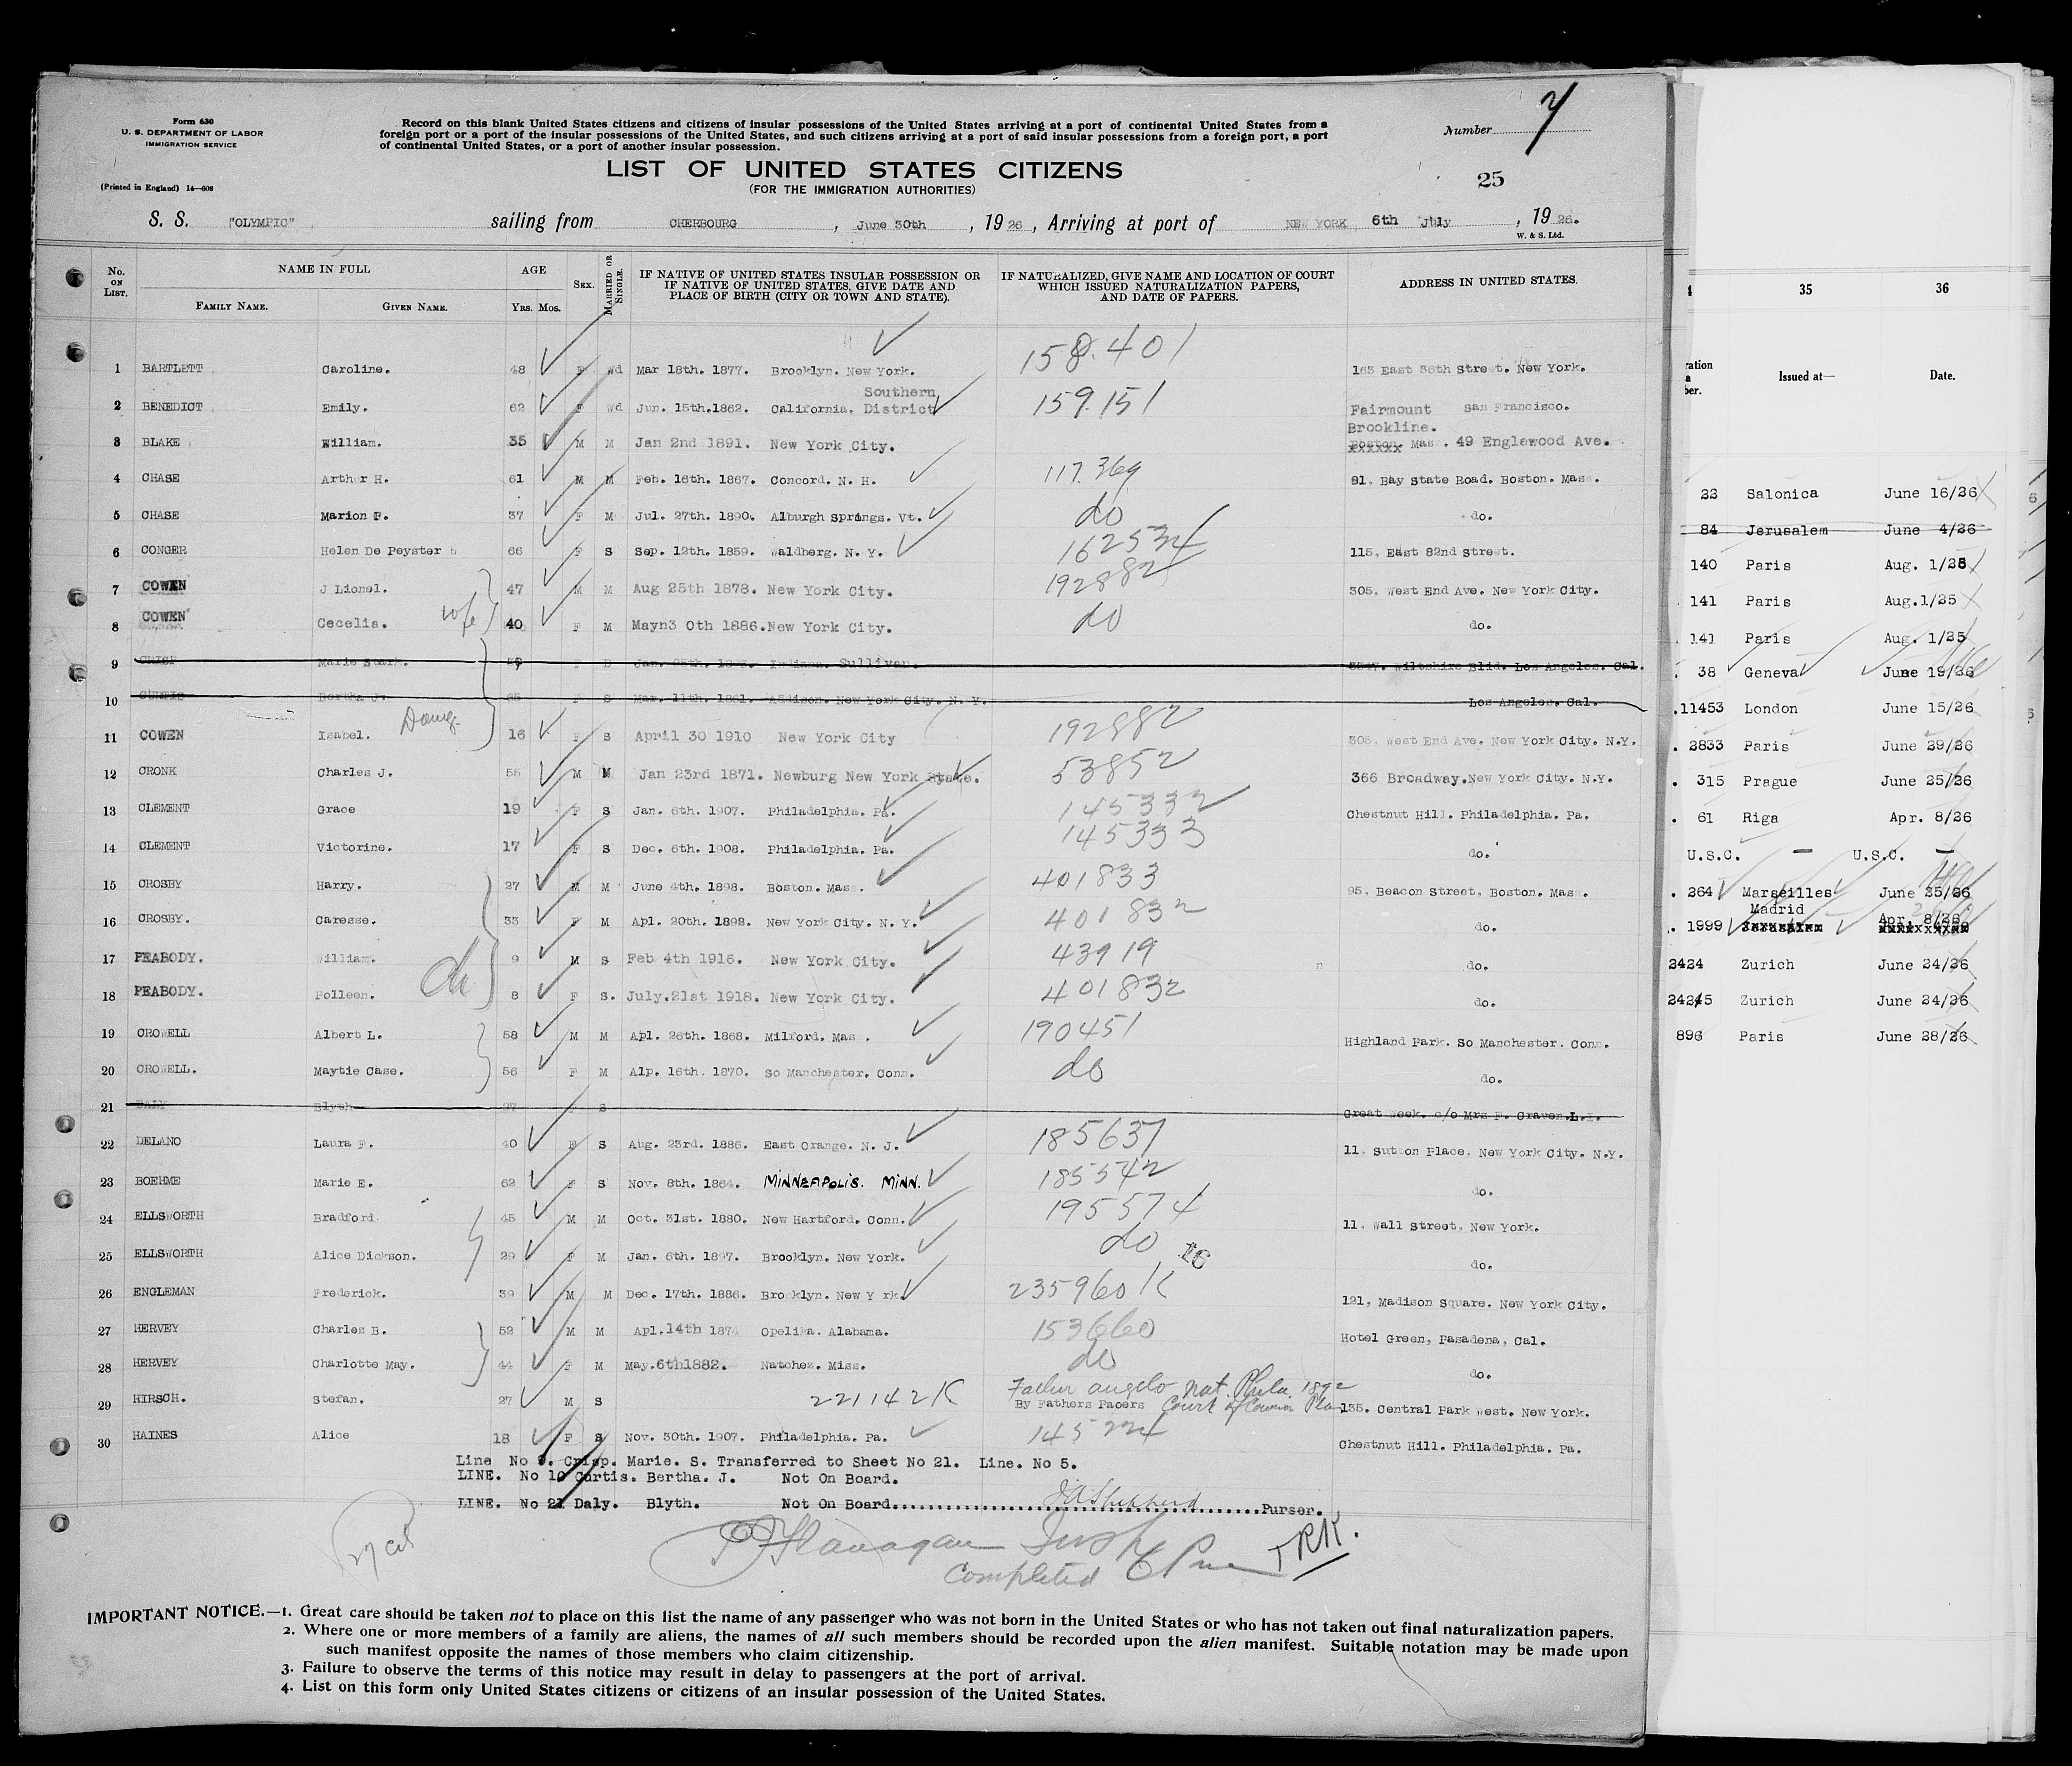 Form 630
U. S. DEPARTMENT OF LABOR
IMMIGRATION SERVICE
(Printed in England) 14—608
Record on this blank United States citizens and citizens of insular possessions of the United States arriving at a port of continental United States from a
foreign port or a port of the insular possessions of the United States, and such citizens arriving at a port of said insular possessions from a foreign port, a port
of continental United States, or a port of another insular possession.
Number
LIST OF UNITED STATES CITIZENS
(FOR THE IMMIGRATION AUTHORITIES)
25
S. S. "OLYMPIC" sailing from CHERBOURG , June 30th , 1926 , Arriving at port of NEW YORK 6th July , 1926.
W. & S. Ltd.
No. ON LIST. NAME IN FULL AGE SEX. MARRIED OR SINGLE. IF NATIVE OF UNITED STATES INSULAR POSSESSION OR IF NATIVE OF UNITED STATES, GIVE DATE AND PLACE OF BIRTH (CITY OR TOWN AND STATE). IF NATURALIZED, GIVE NAME AND LOCATION OF COURT WHICH ISSUED NATURALIZATION PAPERS, AND DATE OF PAPERS. ADDRESS IN UNITED STATES.
FAMILY NAME. GIVEN NAME. YRS. MOS.
1 BARTLETT Caroline. 48 F Wd Mar 18th. 1877. Brooklyn. New York. 158.401 163 East 36th Street. New York.
2 BENEDICT Emily. 62 F Wd Jun. 15th.1862. California. Southern District 159.151 Fairmount San Francisco.
3 BLAKE William. 35 M M Jan 2nd 1891. New York City. Brookline. Boston Mass. 49 Englewood Ave.
4 CHASE Arthur H. 61 M M Feb. 16th. 1867. Concord. N. H. 117.369 81. Bay State Road. Boston. Mass.
5 CHASE Marion F. 37 F M Jul. 27th. 1890. Alburgh Springs. Vt. do do.
6 CONGER Helen De Peyster 66 F S Sep. 12th. 1859. Waldberg. N. Y. 162534 115. East 82nd Street.
7 COWEN J Lionel. 47 M M Aug 25th 1878. New York City. 192882 305. West End Ave. New York City.
8 COWEN Cecelia. wife 40 F M Mayn3 0th 1886.New York City. do do.
9 CRISP Marie Stark. F D Indiana. Sullivan. Wiltshire Blid. Los Angeles. Cal.
10 CURTIS Bertha J. 65 F S Mar. 11th. 1861. Addison. New York City. N. Y. Los Angeles. Cal.
11 COWEN Isabel. Daug. 16 F S April 30 1910 New York City 192882 305. West End Ave. New York City. N.Y.
12 CRONK Charles J. 55 M M Jan 23rd 1871. Newburg New York State. 53852 366 Broadway.New York City. N.Y.
13 CLEMENT Grace 19 F S Jan. 6th. 1907. Philadelphia. Pa. 145332 Chestnut Hill. Philadelphia. Pa.
14 CLEMENT Victorine. 17 F S Dec. 6th. 1908. Philadelphia. Pa. 145333 do.
15 CROSBY Harry. 27 M M June 4th. 1898. Boston. Mass. 401833 95. Beacon Street. Boston. Mass.
16 CROSBY. Caresse. 33 F M Apl. 20th. 1892. New York City. N. Y. 401832 do.
17 PEABODY. William. 9 M S Feb 4th 1916. New York City. 43919 do.
18 PEABODY. Polleen. 8 F S. July.21st 1918. New York City. 401832 do.
19 CROWELL Albert L. 58 M M Apl. 26th. 1868. Milford. Mas . 190451 Highland Park. So Manchester. Conn.
20 CROWELL. Maytie Case. 56 F M Alp. 16th. 1870. So Manchester. Conn. do do.
21 DALY Blyth 27 S Great week. c/o Mrs F. Craven.L.I.
22 DELANO Laura F. 40 F S Aug. 23rd. 1886. East Orange. N. J. 185637 11. Sutton Place. New York City. N.Y.
23 BOEHME Marie E. 62 F S Nov. 8th. 1864. MINNEAPOLIS. MINN. 185542 do.
24 ELLSWORTH Bradford 45 M M Oct. 31st. 1880. New Hartford. Conn. 195574 11. Wall Street. New York.
25 ELLSWORTH Alice Dickson. 29 F M Jan. 6th. 1897. Brooklyn. New York. do 16 do.
26 ENGLEMAN Frederick. 39 M M Dec. 17th. 1886. Brooklyn. New Y rk. 235960 K 121, Madison Square. New York City.
27 HERVEY Charles B. 52 M M Apl.14th 1874 Opelika. Alabama. 153660 Hotel Green, Pasadena, Cal.
28 HERVEY Charlotte May. 44 F M May.6th1882. Natchez. Miss. do do.
29 HIRSCH. Stefan. 27 M S 221142K Father Angelo nat. Phila. 1892 By Fathers Papers Court of Common Pleas 135. Central Park West. New York.
30 HAINES Alice 18 F S Nov. 30th. 1907. Philadelphia. Pa. 145224 Chestnut Hill. Philadelphia. Pa.
Line No 9. Crisp. Marie. S. Transferred to Sheet No 21. Line. No 5.
LINE. No 10 Curtis. Bertha. J. Not On Board.
LINE. No 21 Daly. Blyth. Not On Board. Purser.
Flanagan Insp
Completed TRK.
IMPORTANT NOTICE.—1. Great care should be taken not to place on this list the name of any passenger who was not born in the United States or who has not taken out final naturalization papers.
2. Where one or more members of a family are aliens, the names of all such members should be recorded upon the alien manifest. Suitable notation may be made upon
such manifest opposite the names of those members who claim citizenship.
3. Failure to observe the terms of this notice may result in delay to passengers at the port of arrival.
4. List on this form only United States citizens or citizens of an insular possession of the United States.
35 36
Issued at— Date.
22 Salonica June 16/26
84 Jerusalem June 4/26
140 Paris Aug. 1/25
141 Paris Aug.1/25
141 Paris Aug. 1/25
38 Geneva June 19/26
.11453 London June 15/26
. 2833 Paris June 29/26
. 315 Prague June 25/26
. 61 Riga Apr. 8/26
U.S.C. — U.S.C. —
. 264 Marseilles June 25/26
. 1999 Madrid Apr. 8/26
2424 Zurich June 24/26
2425 Zurich June 24/26
896 Paris June 28/26